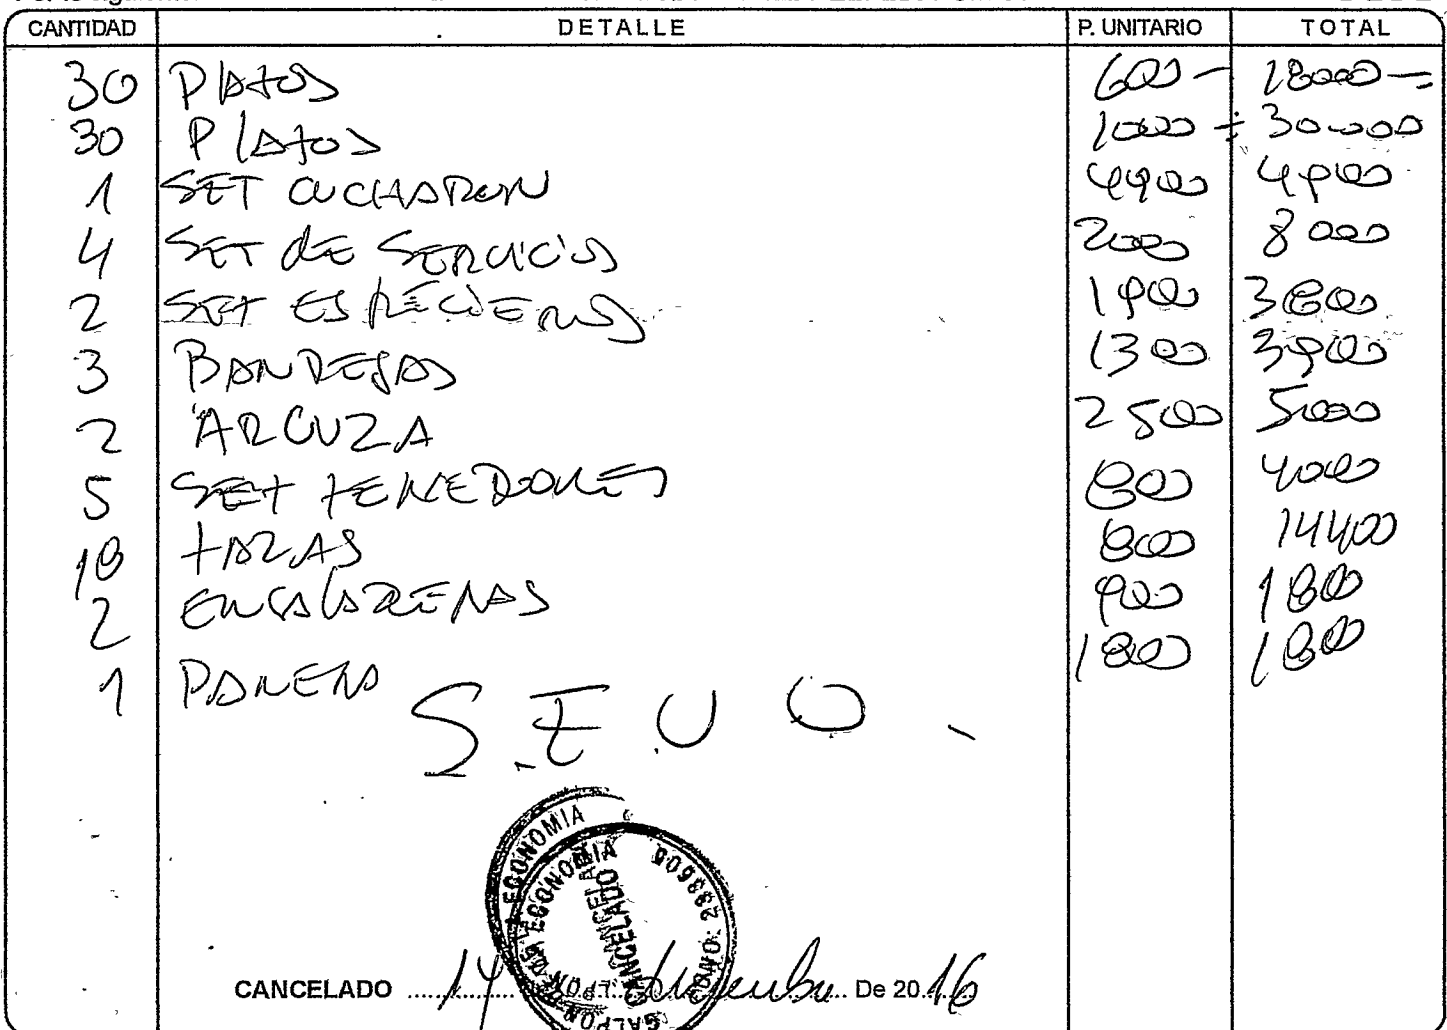 CANTIDAD DETALLE P. UNITARIO TOTAL
30 PlAtos 600- 18000-=
30 PlAtos 1000 ÷ 30.000
1 SET CUCHARON 4900 4900
4 SET dE SERVICIOS 2000 8000
2 SET ESPECIEROS 1900 3800
3 BANDEJAS 1300 3900
2 ARCUZA 2500 5000
5 SET tENEDORES 800 4000
18 tAZAS 800 14400
2 ENSALADERAS 900 1800
1 PANERA 1800 1800
S.E.U O.
GALPON DE LA ECONOMIA
CANCELADO
CANCELADO 14 Diciembre De 20 16